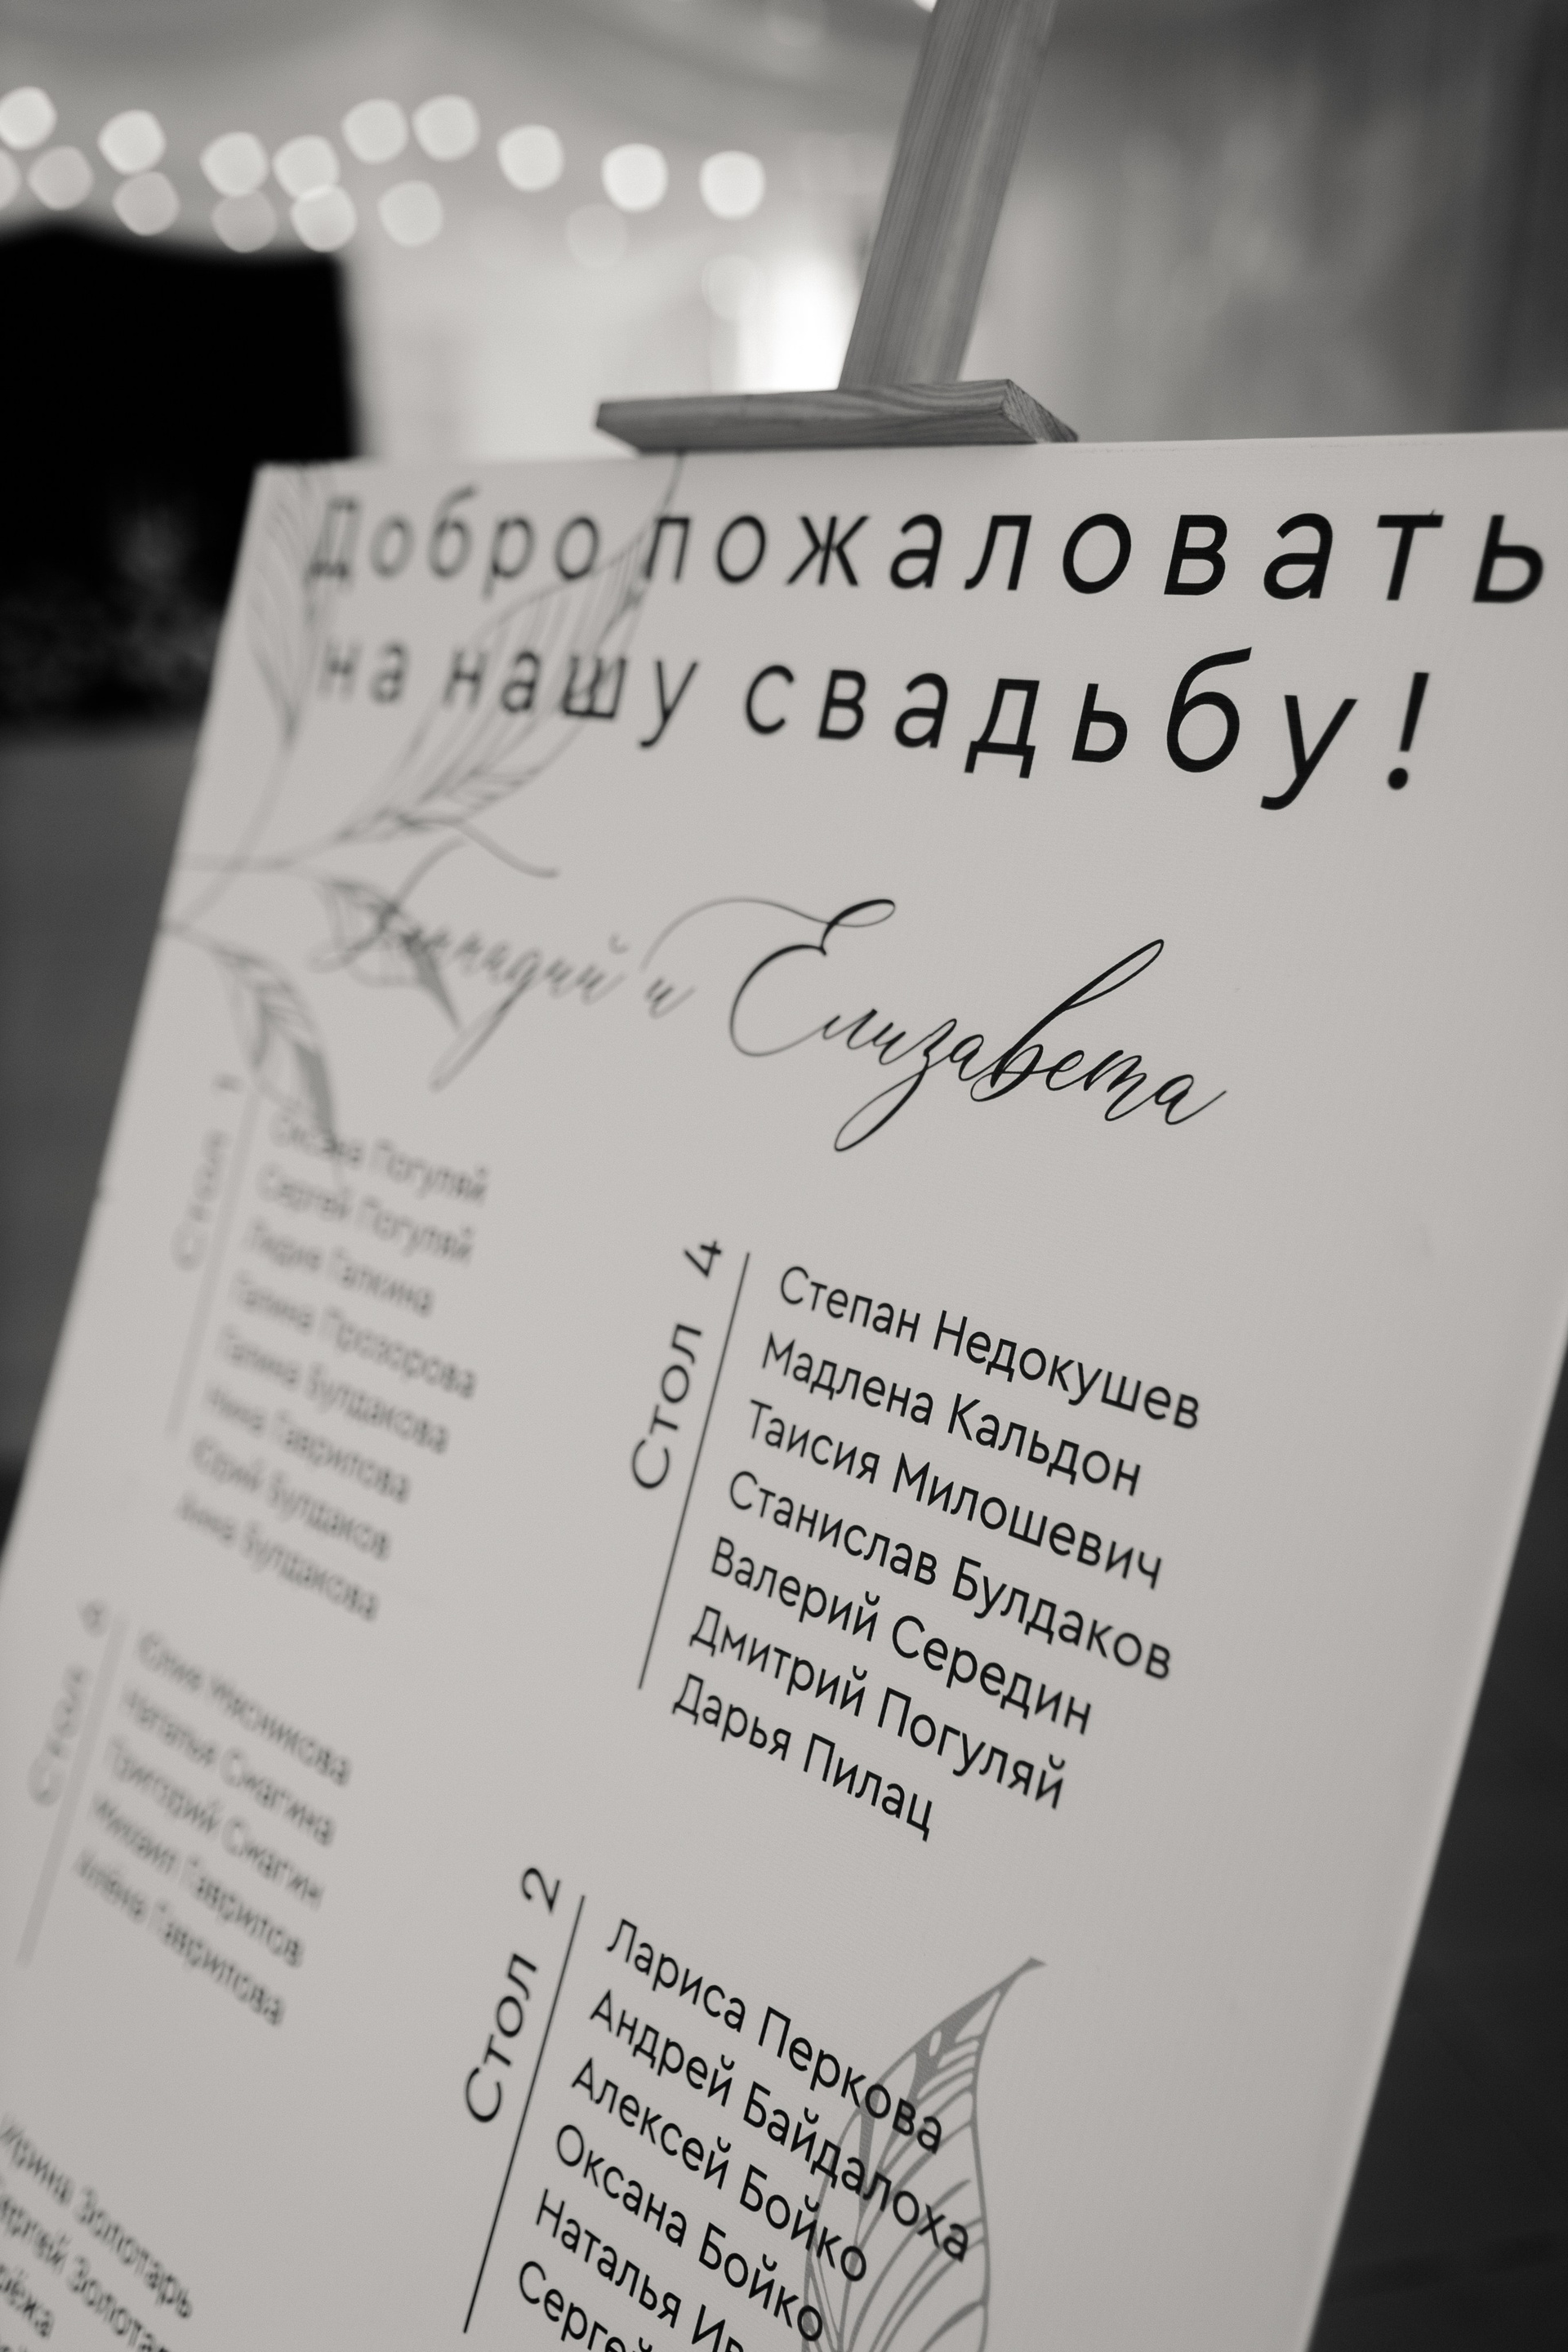 Добро пожаловать
на нашу свадьбу!
Геннадий и Елизавета
Стол 1
Оксана Погуляй
Сергей Погуляй
Лидия Галкина
Галина Прозорова
Галина Булдакова
Нина Гаврилова
Юрий Булдаков
Анна Булдакова
Стол 4
Степан Недокушев
Мадлена Кальдон
Таисия Милошевич
Станислав Булдаков
Валерий Середин
Дмитрий Погуляй
Дарья Пилац
Стол
Юлия Мясникова
Наталья Смагина
Григорий Смагин
Михаил Гаврилов
Алёна Гаврилова
Стол 2
Лариса Перкова
Андрей Байдалоха
Алексей Бойко
Оксана Бойко
Наталья
Золотарь
Сергей